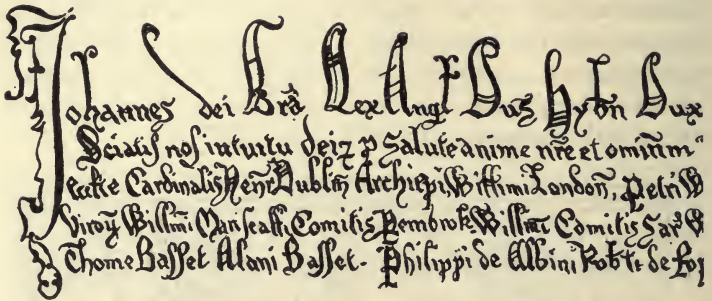 Johannes dei Grã Rex Angl Dns Hybn Dux
Sciatis nos intuitu dei ⁊ p Salute anime nr̃e et omnium
Cardinalis Henr̃ Dublin Archiepi, Willimi London, Petri W
Willmi Marescalli, Comitis Pembrok Willmi Comitis Sar̃ W
Thome Basset Alani Basset. Philippi de Albini Robti de Rop